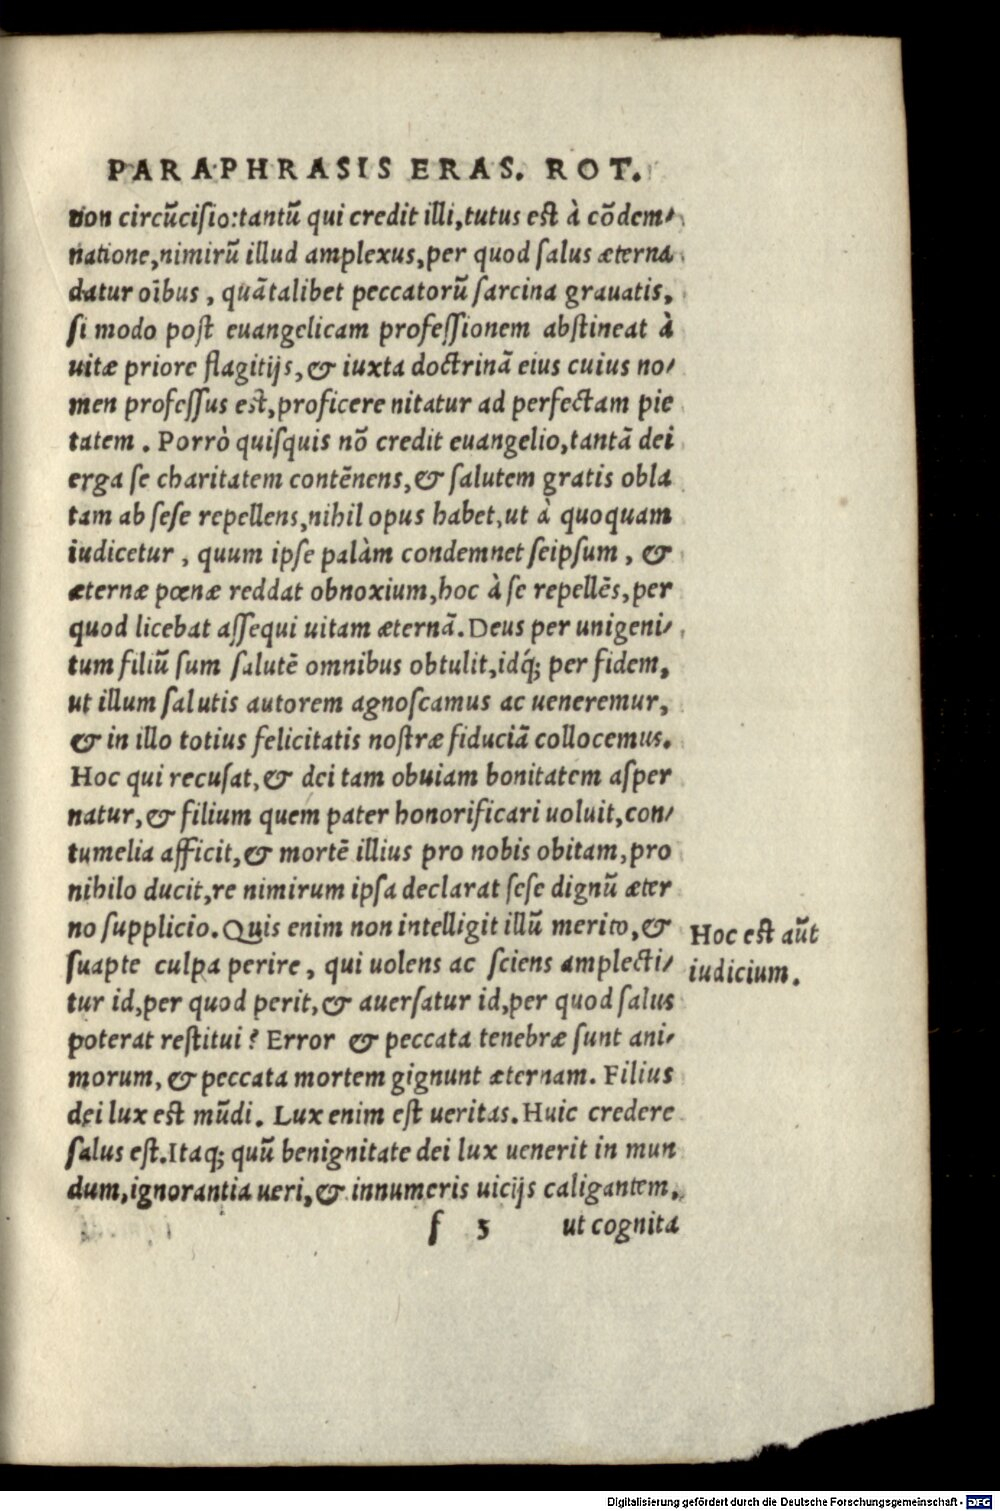 PARAPHRASIS ERAS. ROT.
non circũcisio:tantũ qui credit illi,tutus est à cõdem⸗
natione,nimirũ illud amplexus,per quod salus æterna
datur oībus, quãtalibet peccatorũ sarcina grauatis,
si modo post euangelicam professionem abstineat à
uitæ priore flagitijs,& iuxta doctrinã eius cuius no⸗
men professus est,proficere nitatur ad perfectam pie
tatem. Porrò quisquis nõ credit euangelio,tantã dei
erga se charitatem contẽnens,& salutem gratis obla
tam ab sese repellens,nihil opus habet,ut à quoquam
iudicetur, quum ipse palàm condemnet seipsum, &
æternæ pœnæ reddat obnoxium,hoc à se repellẽs,per
quod licebat assequi uitam æternã. Deus per unigeni⸗
tum filiũ sum salutẽ omnibus obtulit,idq́; per fidem,
ut illum salutis autorem agnoscamus ac ueneremur,
& in illo totius felicitatis nostræ fiduciã collocemus.
Hoc qui recusat,& dei tam obuiam bonitatem asper
natur,& filium quem pater honorificari uoluit,con⸗
tumelia afficit,& mortẽ illius pro nobis obitam,pro
nihilo ducit,re nimirum ipsa declarat sese dignũ æter
no supplicio. Quis enim non intelligit illũ merito,&
suapte culpa perire, qui uolens ac sciens amplecti⸗
tur id,per quod perit,& auersatur id,per quod salus
poterat restitui? Error & peccata tenebræ sunt ani⸗
morum,& peccata mortem gignunt æternam. Filius
dei lux est mũdi. Lux enim est ueritas. Huic credere
salus est. Itaq; quũ benignitate dei lux uenerit in mun
dum,ignorantia ueri,& innumeris uicijs caligantem,
f 3 ut cognita
Hoc est aũt
iudicium.
Digitalisierung gefördert durch die Deutsche Forschungsgemeinschaft - DFG